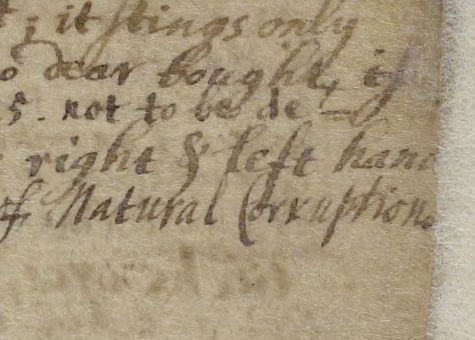 ; it stings only
o dear bought, if
5. not to be de -
right & left hand
of Natural Corruptions